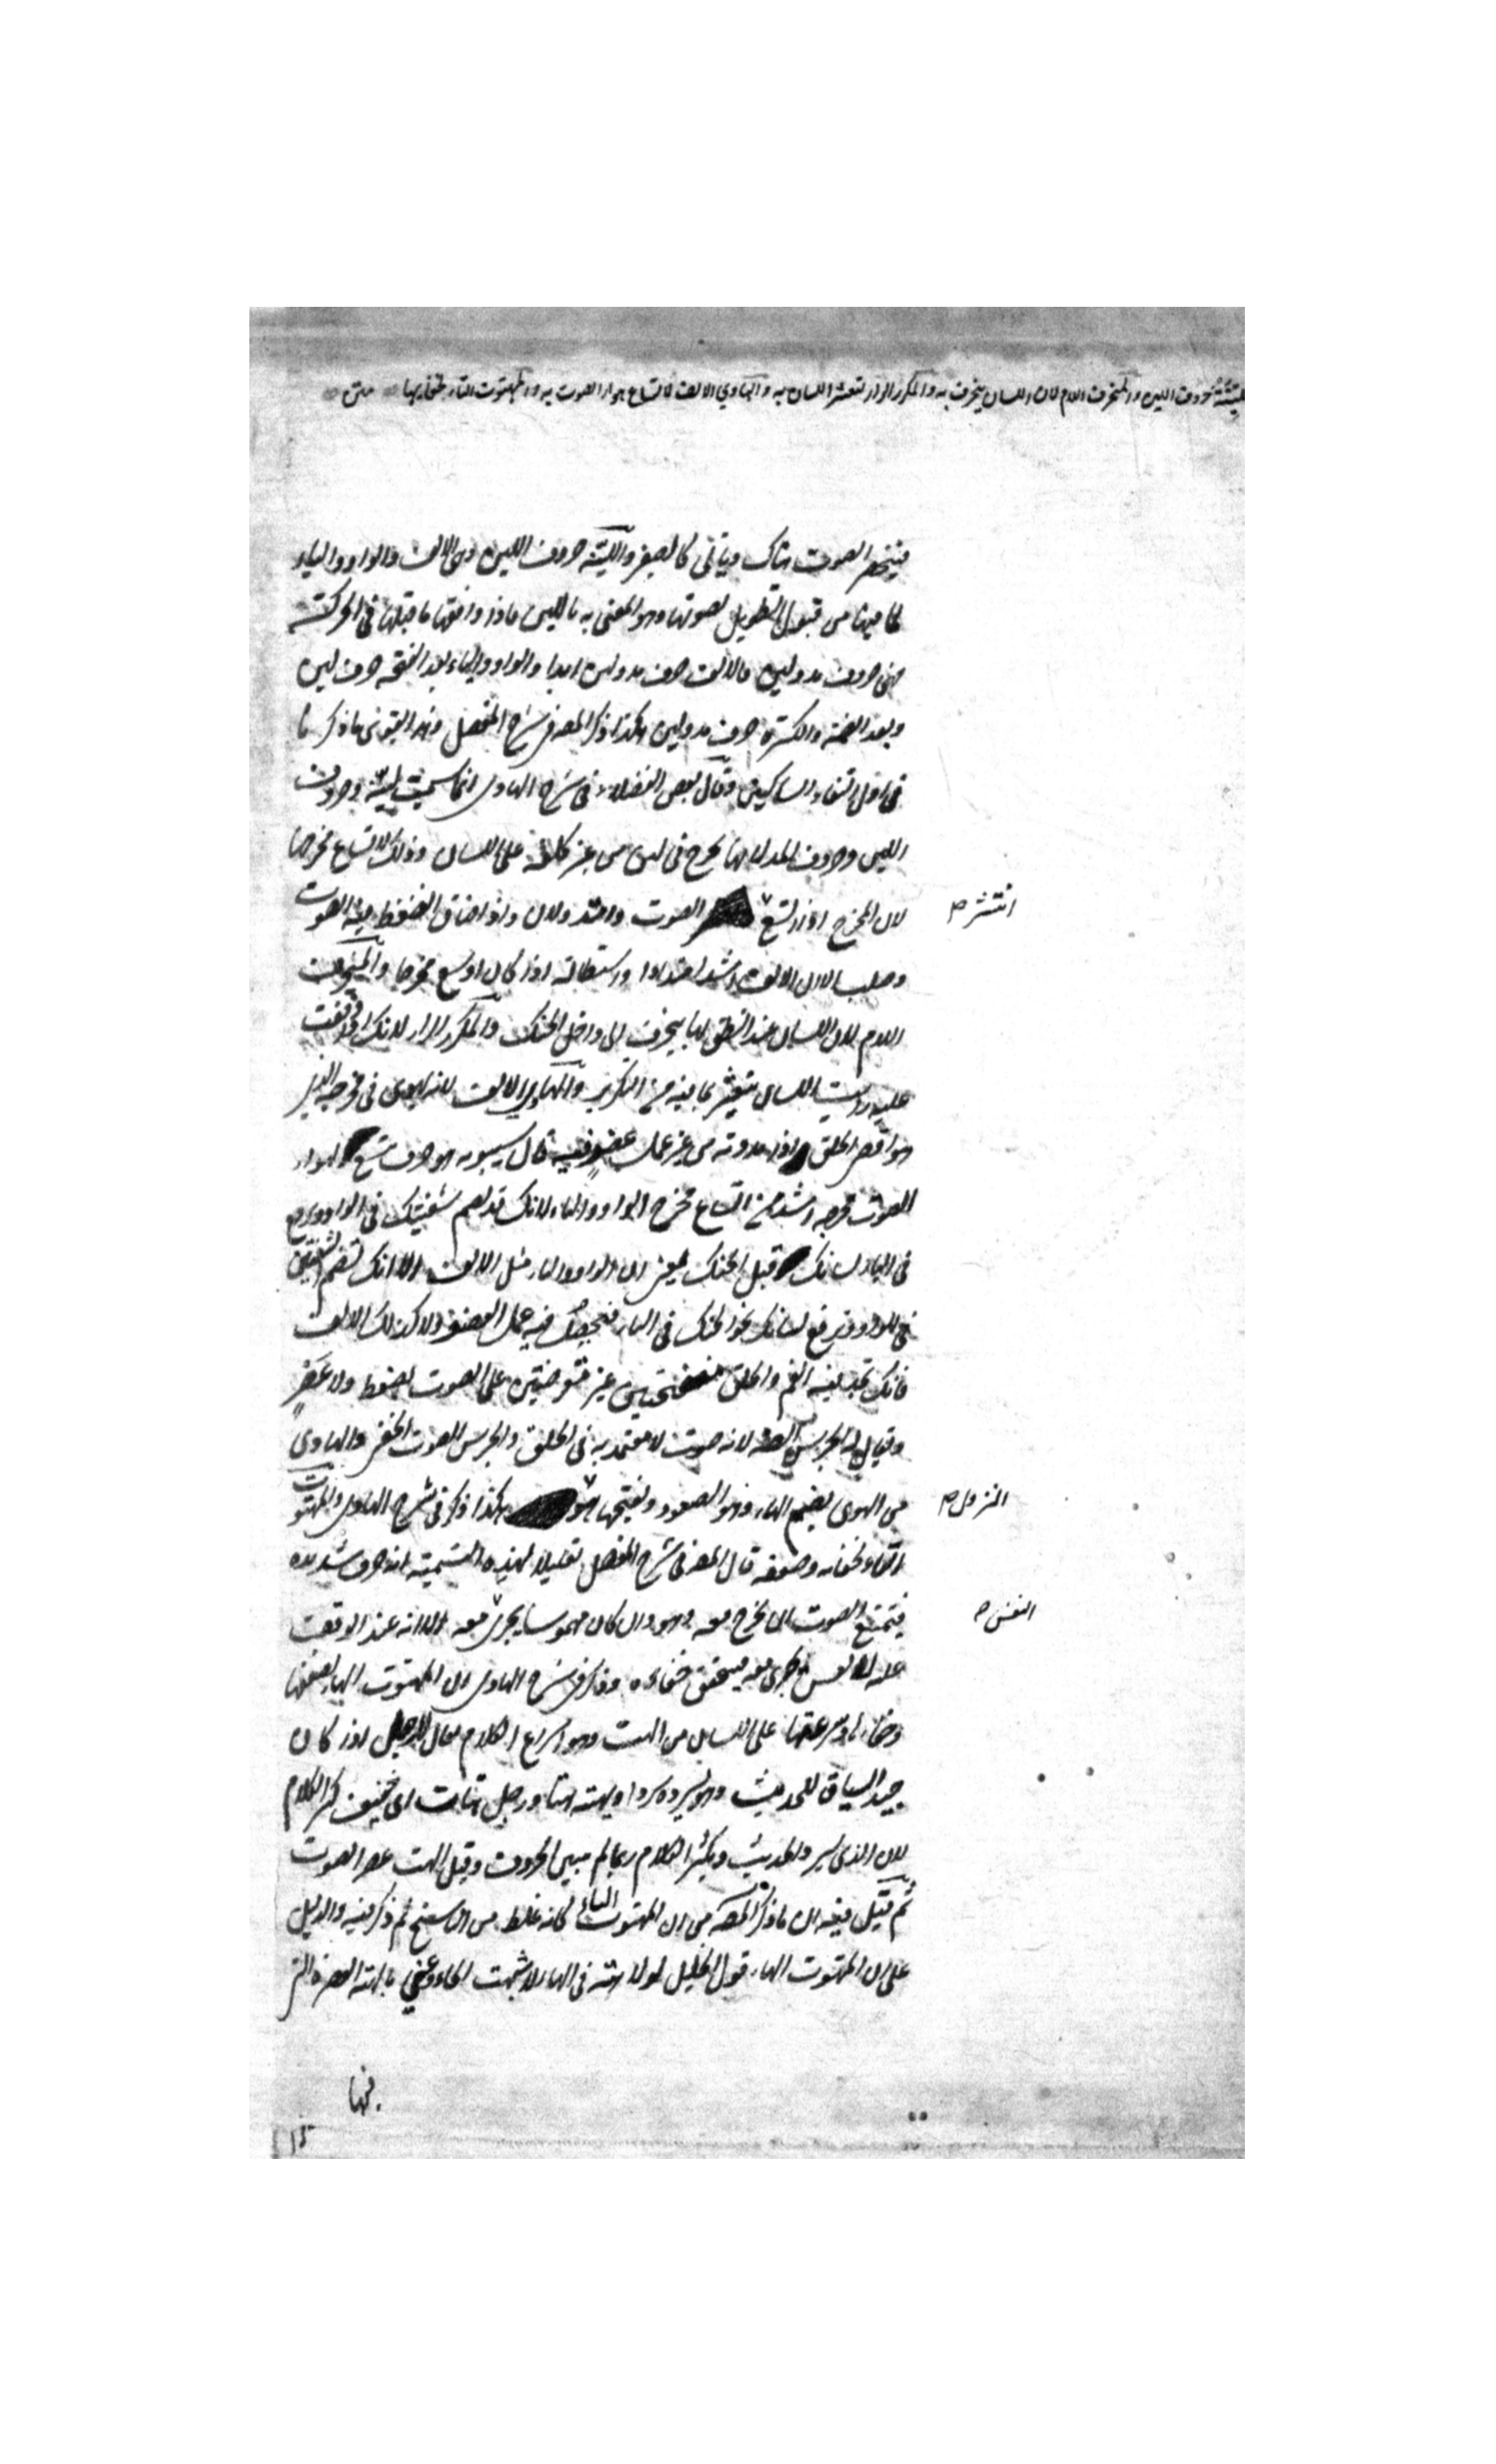 اللينة حروف اللين والمنحرف اللام لان اللسان ينحرف به والمكرر الراء لتعثر اللسان به والهاوي الالف لاتساع هواء الصوت به والمهتوت التاء لخفائها متن
فينحصر الصوت هناك ويأتى كالصفير واللينة حروف اللين وهى الالف والواو والياء
لما فيها من قبول التطويل لصوتها وهو المعنى به باللين فاذا وافقها ما قبلها فى الحركة
فهى حروف مد ولين فالالف حرف مد ولين ابدا والواو والياء بعد الفتحة حرف لين
وبعد الضمة والكسرة حرف مد ولين هكذا ذكر المصـ فى شرح المفصل وهذا يقوى ما ذكرنا
فى اول التقاء الساكنين وقال بعض الفضلاء فى شرح الهادى انما سميت لينة وحروف
اللين وحروف المد لانها تخرج فى لين من غير كلفة على اللسان وذلك لاتساع مخرجها
لان المخرج اذا اتسع الصوت وامتد ولان واذا ضاق انضغط فيه الصوت
انتشر صح
وصلب الا ان الالف اشد امتدادا واستطالة اذا كان اوسع مخرجا والمنحرف
اللام لان اللسان عند النطق بها ينحرف الى داخل الحنك والمكرر الراء لانك اذا وقفت
عليه رايت اللسان يتعثر بما فيه من التكرير والهاوى الالف لانه يهوى فى مخرجه الذى
هو اقصى الحلق اذا مددته من غير عمل عضو فيه قال سيبويه هو حرف يتسع لهواء
الصوت مخرجه اشد من اتساع مخرج الواو والياء لانك قد تضم شفتيك فى الواو وترفع
فى الياء لسانك قبل الحنك يعنى ان الواو والياء مثل الالف الا انك تضم الشفتين
فى الواو وترفع لسانك نحو الحنك فى الياء فيحصل فيه عمل العضو ولا كذلك الالف
فانك تجد فيه الفم والحلق منفتحتين غير معترضتين على الصوت بضغط ولا عصر
ويقال له الجرسى ايضا لانه صوت لا معتمد به فى الحلق والجرس الصوت الخفى والهاوى
من الهوى بضم الهاء وهو الصعود وبفتحها هو هكذا ذكر فى شرح الهادى والمهتوت
النزول صح
التاء لخفائه وضعفه قال المصـ فى شرح المفصل تعليلا لهذه التسمية انه حرف شديد
فيمتنع الصوت ان يخرج معه وهو وان كان مهموسا يجرى معه الا انه عند الوقف
النفس صح
عليه لا نفس يجرى معه فيتحقق خفاءه وذكر فى شرح الهادى ان المهتوت الهاء لضعفها
وخفائها وسرعتها على اللسان من الهت وهو اسراع الكلام يقال للرجل اذا كان
جيد السياق للحديث وهو يسرده سردا ويهته هتا ورجل هتات اى خفيف كثير الكلام
لان الذى يسرد الحديث ويكثر الكلام ربما لم يبين الحروف وقيل الهت عصر الصوت
ثم قيل فيه ان ما ذكر المصـ من ان المهتوت التاء كانه غلط من الناسخ ثم ذكر فيه والدليل
على ان المهتوت الهاء قول الخليل لولا هتة فى الهاء لاشبهت الحاء وعنى بالهتة العصرة التى
فيها